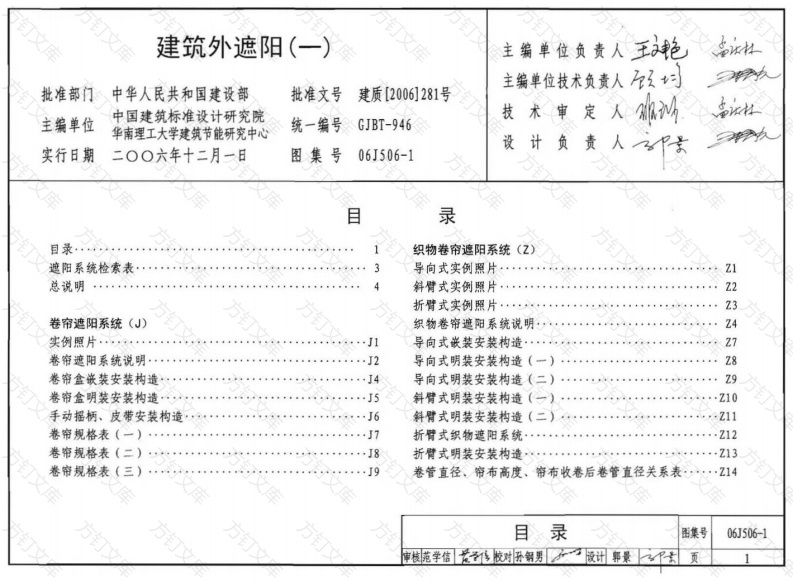 建筑外遮阳(一)
批准部门 中华人民共和国建设部 批准文号 建质[2006]281号
主编单位 中国建筑标准设计研究院 华南理工大学建筑节能研究中心 统一编号 GJBT-946
实行日期 二〇〇六年十二月一日 图集号 06J506-1
主编单位负责人
主编单位技术负责人
技术审定人
设计负责人
目 录
目录 1
遮阳系统检索表 3
总说明 4
卷帘遮阳系统(J)
实例照片 J1
卷帘遮阳系统说明 J2
卷帘盒嵌装安装构造 J4
卷帘盒明装安装构造 J5
手动摇柄、皮带安装构造 J6
卷帘规格表(一) J7
卷帘规格表(二) J8
卷帘规格表(三) J9
织物卷帘遮阳系统(Z)
导向式实例照片 Z1
斜臂式实例照片 Z2
折臂式实例照片 Z3
织物卷帘遮阳系统说明 Z4
导向式嵌装安装构造 Z7
导向式明装安装构造(一) Z8
导向式明装安装构造(二) Z9
斜臂式明装安装构造(一) Z10
斜臂式明装安装构造(二) Z11
折臂式织物遮阳系统 Z12
折臂式明装安装构造 Z13
卷管直径、帘布高度、帘布收卷后卷管直径关系表 Z14
目 录 图集号 06J506-1
审核 范学信 校对 孙钢男 设计 郭景 页 1
方钉文库